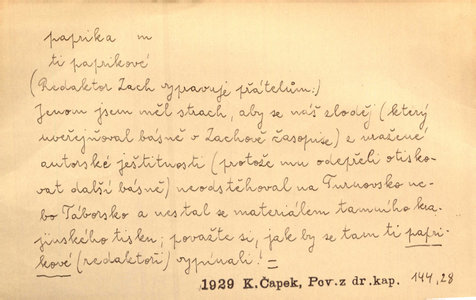 paprika m
ti paprikové
(Redaktor Zach vypravuje přátelům:)
Jenom jsem měl strach, aby se náš zloděj (který
uveřejňoval básně v Zachově časopise) z uražené
autorské ješitnosti (protože mu odepřeli otisko-
vat další básně) neodstěhoval na Turnovsko ne-
bo Táborsko a nestal se materiálem tamního kra-
jinského tisku; považte si, jak by se tam ti papri-
kové (redaktoři) vypínali! =
1929 K.Čapek, Pov.z dr.kap. 144,28